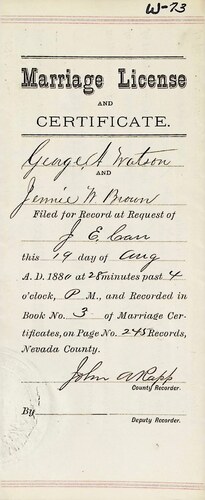 W-73
Marriage License
AND
CERTIFICATE.
George A Watson
AND
Jennie W. Brown
Filed for Record at Request of
J E Carr
this 19 day of Aug
A. D. 1880 at 28 minutes past 4
o'clock, P M., and Recorded in
Book No. 3 of Marriage Cer-
tificates, on Page No. 245 Records,
Nevada County.
John A Rapp
County Recorder.
By
Deputy Recorder.